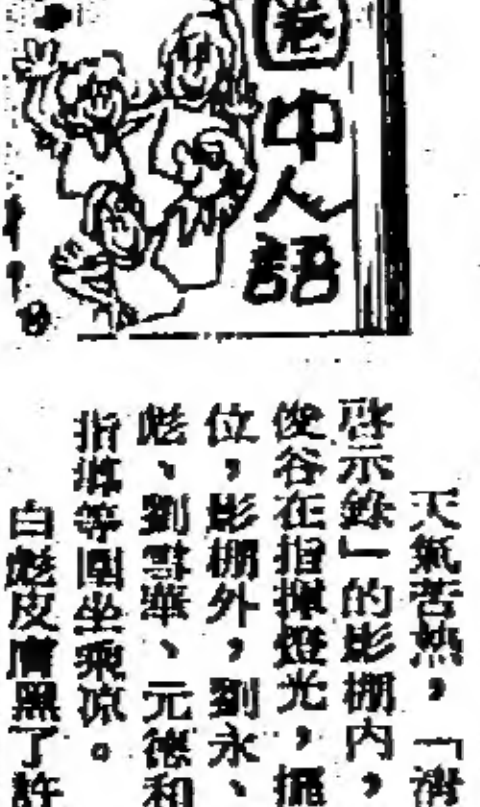 圈中人語
天氣苦熱，「滑
啓示錄」的影棚內，
俊谷在指揮燈光，擺
位，影棚外，劉永、
彪、劉雪華、元德和
指導等圍坐乘凉。
白彪皮膚黑了許